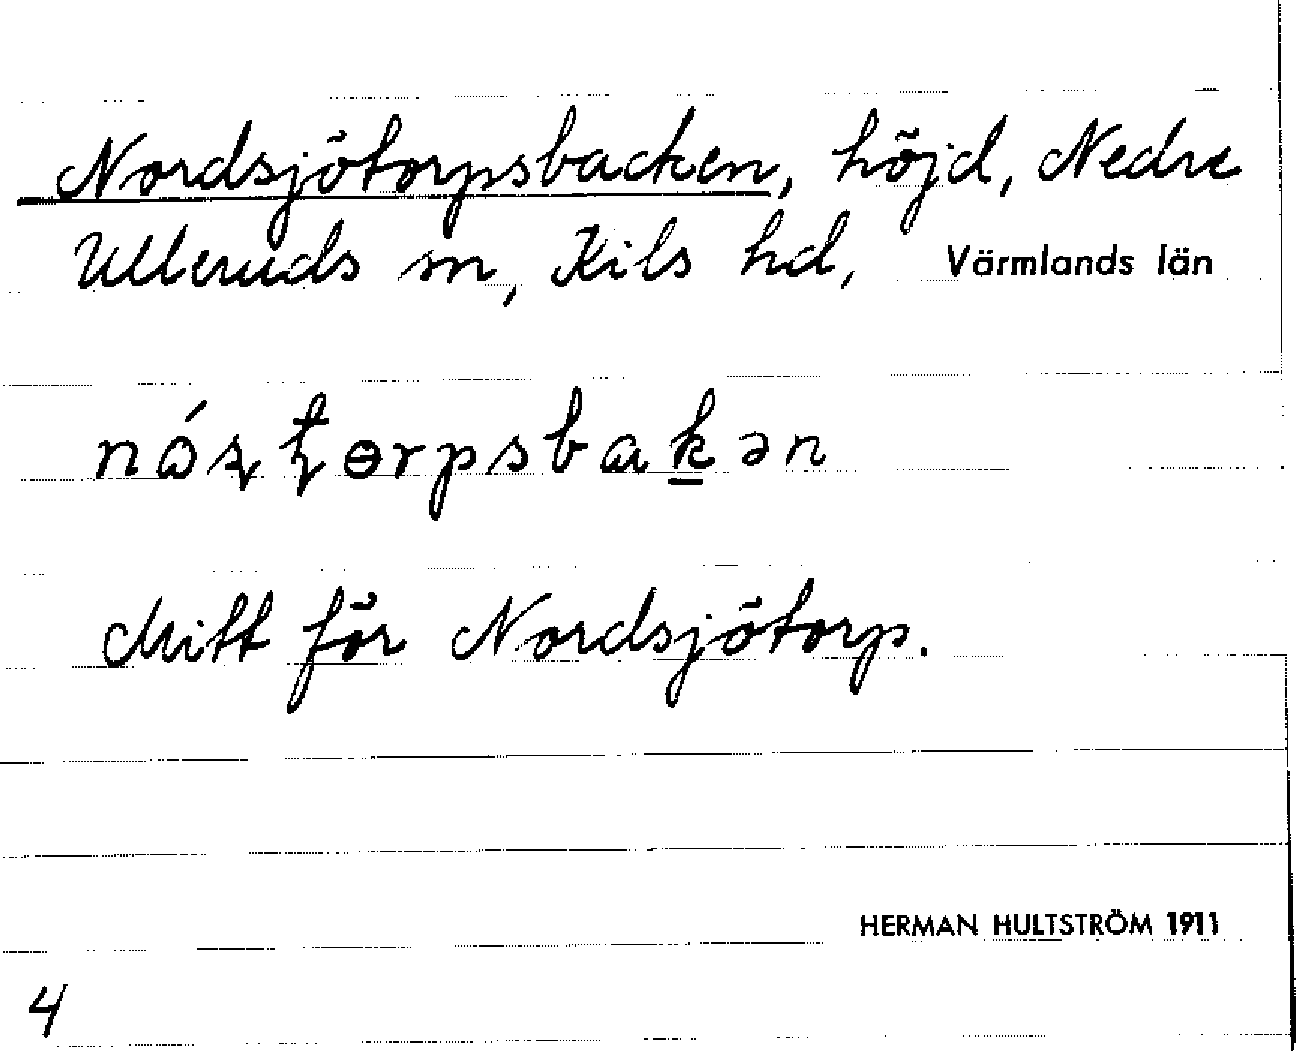 Nordsjötorpsbacken, höjd, Nedre
Ulleruds sn, Kils hd, Värmlands län
Mitt för Nordsjötorp.
HERMAN HULTSTRÖM 1911
4